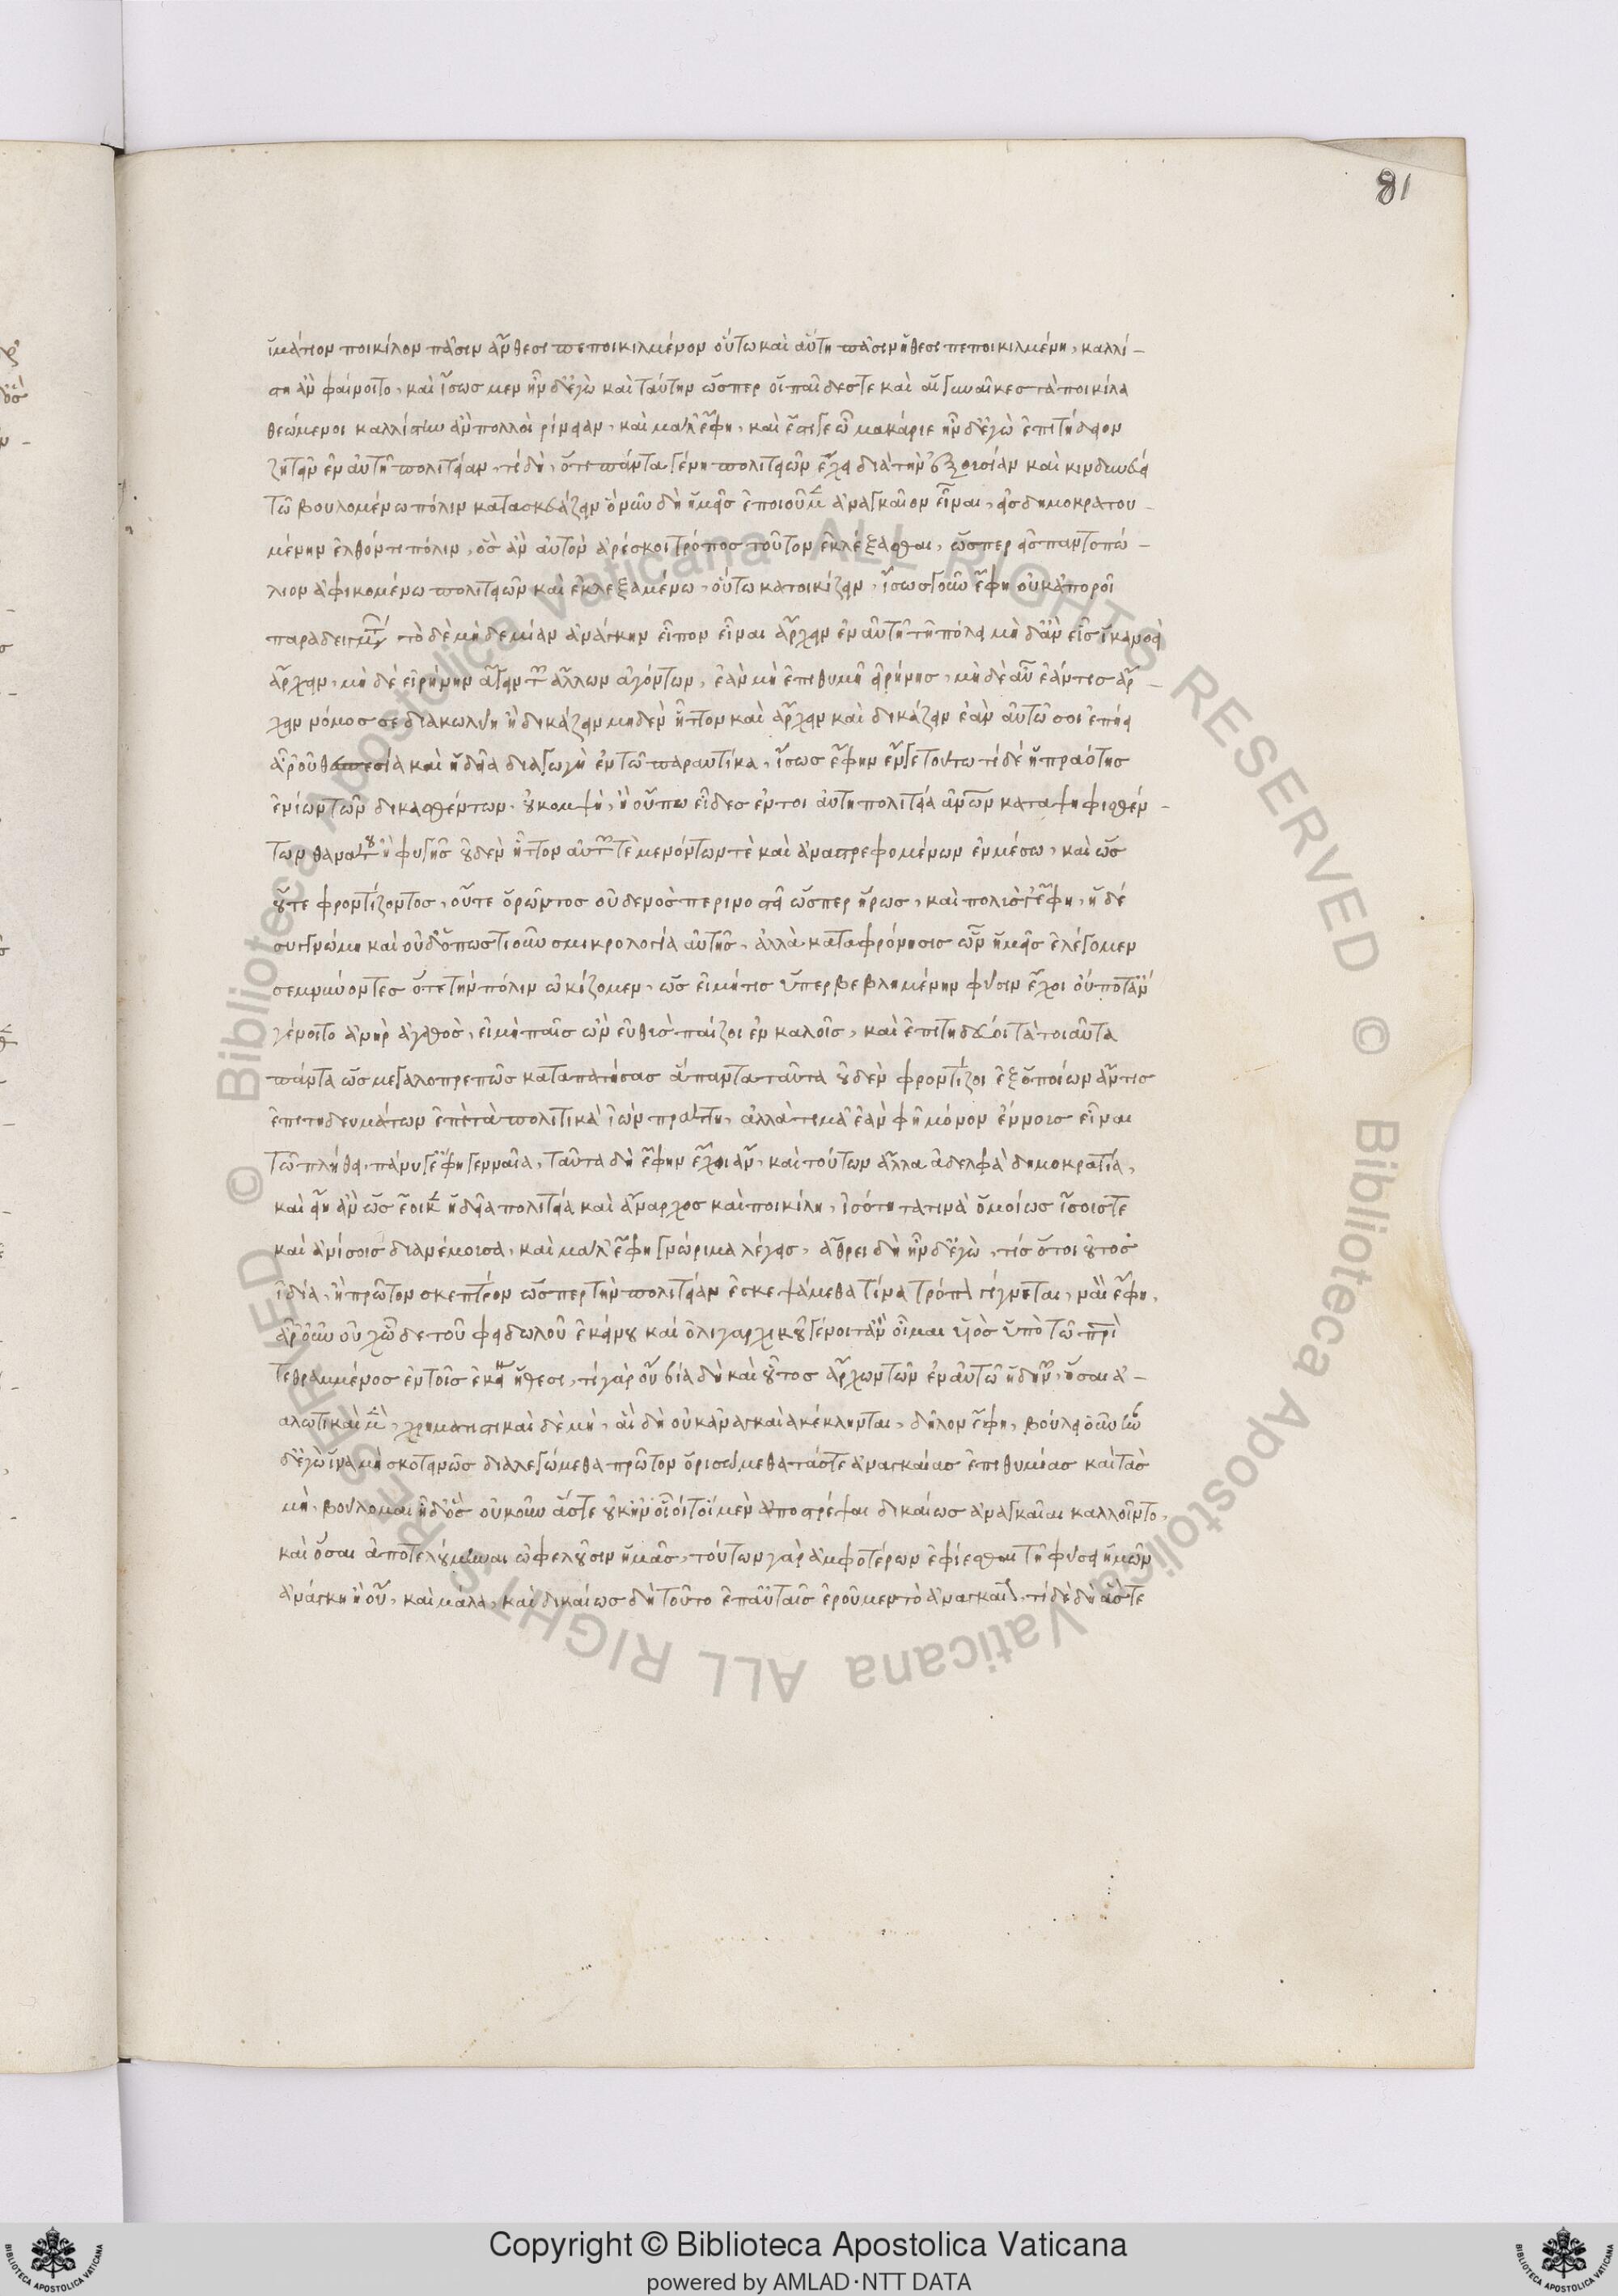 81
ἱμάτιον ποικίλον πᾶσιν ἄνθεσι πεποικιλμένον οὕτω καὶ αὕτη πᾶσιν ἤθεσι πεποικιλμένη, καλλί-
στη ἂν φαίνοιτο, καὶ ἴσως μεν ἦν δ' ἐγὼ καὶ ταύτην ὥσπερ οἱ παῖδές τε καὶ αἱ γυναῖκες τὰ ποικίλα
θεώμενοι καλλίστην ἂν πολλοὶ κρίνειαν, καὶ μάλ' ἔφη, καὶ ἔστι γε ὦ μακάριε ἦν δ' ἐγὼ ἐπιτήδειον
ζητεῖν ἐν αὐτῇ πολιτείαν, τί δὴ, ὅτι πάντα γένη πολιτειῶν ἔχει διὰ τὴν ἐξουσίαν καὶ κινδυνεύει
τῷ βουλομένω πόλιν κατασκευάζειν ὃ νῦν δὴ ἡμεῖς ἐποιοῦμεν ἀναγκαῖον εἶναι, εἰς δημοκρατου-
μένην ἐλθόντι πόλιν, ὃς ἂν αὐτὸν ἀρέσκοι τρόπος τοῦτον ἐκλέξασθαι, ὥσπερ εἰς παντοπώ-
λιον ἀφικομένω πολιτειῶν καὶ ἐκλεξαμένω, οὕτω κατοικίζειν, ἴσως γοῦν ἔφη οὐκ ἀποροῖ
παραδειγμάτων τὸ δὲ μηδεμίαν ἀνάγκην εἶπον εἶναι ἄρχειν ἐν αὐτῇ τῇ πόλει μὴ δ' ἂν εἶς ἱκανὸς
ἄρχειν, μὴ δὲ εἰρήνην ἄγειν τῶν ἄλλων ἀγόντων, ἐὰν μὴ ἐπιθυμῇ εἰρήνης, μὴ δὲ αὖ ἐάν τις ἄρ-
χειν νόμος σε διακωλύη ἢ δικάζειν μηδὲν ἧττον καὶ ἄρχειν καὶ δικάζειν ἐὰν αὐτῷ σοι ἐπίῃ
ἆρ' οὐ θεσπεσία καὶ ἡδεῖα διαγωγὴ ἐν τῷ παραυτίκα, ἴσως ἔφην ἔν γε τούτω τί δέ ἡ πραότης
ἐνίων τῶν δικασθέντων, οὐ κομψὴ, ἢ οὔπω εἶδες ἐν τοιαύτη πολιτεία ἀνθρώπων καταψηφισθέν-
των θανάτου ἢ φυγῆς οὐδὲν ἧττον αὐτῶν τὲ μενόντων τὲ καὶ ἀναστρεφομένων ἐν μέσω, καὶ ὡς
οὔτε φροντίζοντος, οὔτε ὁρῶντος οὐδενὸς περινοστεῖ ὥσπερ ἥρως, καὶ πολύς γ' ἔφη, ἡ δέ
συγγνώμη καὶ οὐδ' ὁπωστιοῦν σμικρολογία αὐτῆς, ἀλλὰ καταφρόνησις ὧν ἡμεῖς ἐλέγομεν
σεμνύνοντες ὅτε τὴν πόλιν ὠκίζομεν, ὡς εἰ μή τις ὑπερβεβλημένην φύσιν ἔχοι οὔποτ' ἂν
γένοιτο ἀνὴρ ἀγαθὸς, εἰ μὴ παῖς ὢν εὐθὺς παίζοι ἐν καλοῖς, καὶ ἐπιτηδεύοι τὰ τοιαῦτα
πάντα ὡς μεγαλοπρεπῶς καταπατήσας ἅπαντα ταῦτα οὐδὲν φροντίζοι ἐξ ὁποίων ἄν τις
ἐπιτηδευμάτων ἐπὶ τὰ πολιτικὰ ἰὼν πράττη, ἀλλὰ τιμᾶ ἐὰν φῇ μόνον εὔνους εἶναι
τῷ πλήθει, πάνυ γ' ἔφη γενναία, ταῦτα δὴ ἔφην ἔχοι ἂν, καὶ τούτων ἄλλα ἀδελφὰ δημοκρατία,
καὶ εἴη ἂν ὡς ἔοικεν ἡδεῖα πολιτεία καὶ ἄναρχος καὶ ποικίλη, ἰσότητά τινὰ ὁμοίως ἴσοις τε
καὶ ἀνίσοις διανέμουσα, καὶ μάλ' ἔφη γνώριμα λέγεις, ἄθρει δὴ ἦν δ' ἐγὼ, τίς ὁ τοιοῦτος
ἰδία, ἢ πρῶτον σκεπτέον ὥσπερ τὴν πολιτείαν ἐσκεψάμεθα τίνα τρόπον γίγνεται, ναὶ ἔφη,
ἆρ' οὖν οὐχ ὧδε τοῦ φειδωλοῦ ἐκείνου καὶ ὀλιγαρχικοῦ γένοιτ' ἂν οἶμαι υἱὸς ὑπὸ τῷ πατρὶ
τεθραμμένος ἐν τοῖς ἐκείνου ἤθεσι, τί γὰρ οὔ βία δὴ καὶ οὗτος ἄρχων τῶν ἐν αὑτῷ ἡδονῶν, ὅσαι ἀ-
αλωτικαὶ μὲν, χρηματιστικαὶ δὲ μὴ, αἳ δὴ οὐκ ἀναγκαῖαι κέκληνται, δῆλον ἔφη, βούλει οὖν ἦν
δ' ἐγὼ ἵνα μὴ σκοτεινῶς διαλεγώμεθα πρῶτον ὁρισώμεθα τάς τε ἀναγκαίας ἐπιθυμίας καὶ τὰς
μὴ, βούλομαι ἦ δ' ὃς οὐκοῦν ἅς τε οὐκ ἂν οἷοί τ' εἶμεν ἀποστρέψαι δικαίως ἀναγκαῖαι καλλοῖντο,
καὶ ὅσαι ἀποτελούμεναι ὠφελοῦσιν ἡμᾶς, τούτων γὰρ ἀμφοτέρων ἐφίεσθαι τῇ φύσει ἡμῶν
ἀνάγκη ἢ οὔ, καὶ μάλα, καὶ δικαίως δὴ τοῦτο ἐπ' αὐταῖς ἐροῦμεν τὸ ἀναγκαῖον, τί δὲ δὴ ἅς τε
Copyright © Biblioteca Apostolica Vaticana
powered by AMLAD·NTT DATA
© Biblioteca Apostolica Vaticana ALL RIGHTS RESERVED © Biblioteca Apostolica Vaticana ALL RIGHTS RESERVED